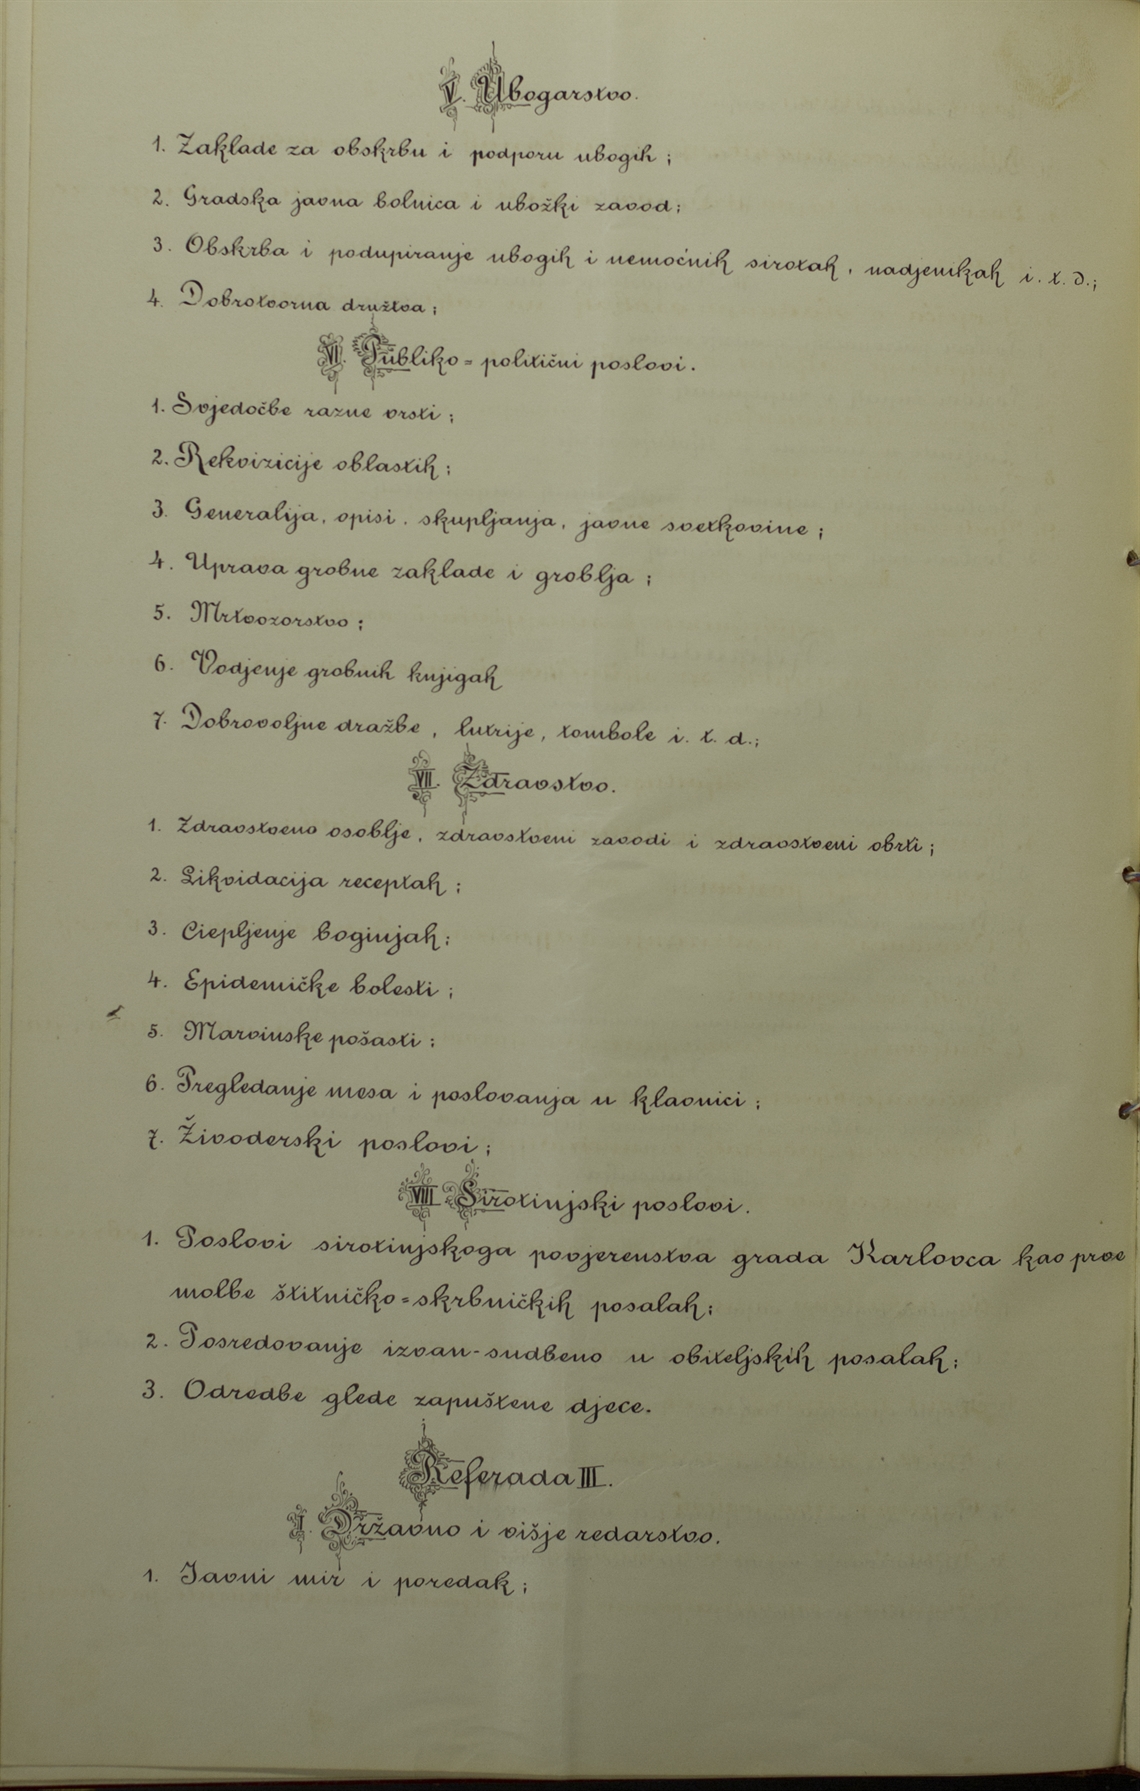 V. Ubogarstvo.
1. Zaklade za obskrbu i podporu ubogih ;
2. Gradska javna bolnica i ubožki zavod ;
3. Obskrba i podupiranje ubogih i nemoćnih sirotah, nadjenikah i. t. d.;
4. Dobrotvorna družtva ;
VI. Publiko = politični poslovi.
1. Svjedočbe razne vrsti ;
2. Rekvizicije oblastih ;
3. Generalija, opisi, skupljanja, javne svetkovine ;
4. Uprava grobne zaklade i groblja ;
5. Mrtvozorstvo ;
6. Vodjenje grobnih knjigah
7. Dobrovoljne dražbe, lutrije, tombole i. t. d.;
VII. Zdravstvo.
1. Zdravstveno osoblje, zdravstveni zavodi i zdravstveni obrti ;
2. Likvidacija receptah ;
3. Ciepljenje boginjah ;
4. Epidemičke bolesti ;
5. Marvinske pošasti ;
6. Pregledanje mesa i poslovanja u klaonici ;
7. Živoderski poslovi ;
VIII Sirotinjski poslovi.
1. Poslovi sirotinjskoga povjerenstva grada Karlovca kao prve
molbe štitničko = skrbničkih posalah ;
2. Posredovanje izvan-sudbeno u obiteljskih posalah ;
3. Odredbe glede zapuštene djece.
Referada III.
I. Državno i višje redarstvo.
1. Javni mir i poredak ;